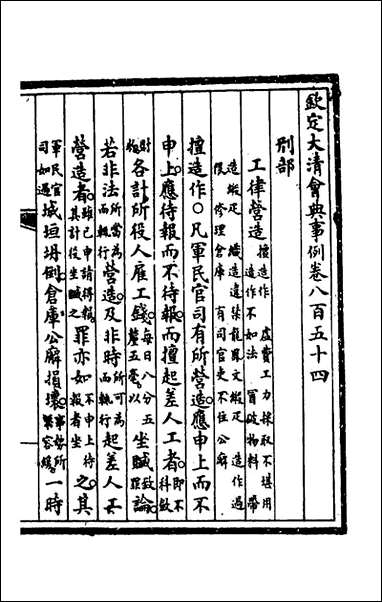 欽定大清會典事例卷八百五十四
刑部
工律營造 擅造作 虛費工力採取不堪用
造作不如法 冒破物料 帶
造緞疋 織造違禁龍鳳文緞疋 造作過
限 修理倉庫 有司官吏不住公廨
擅造作○凡軍民官司有所營造應申上而不
申上應待報而不待報而擅起差人工者即不科斂
財物各計所役人雇工錢每日八分五釐五毫以坐贓致罪論
若非法所當為而輒行營造及非時所可為而輒行起差人工
營造者雖已申請得報其計役坐贓之罪亦如不申上待報者坐之其
軍民官司如遇城垣坍倒倉庫公廨損壞事勢所難容緩一時